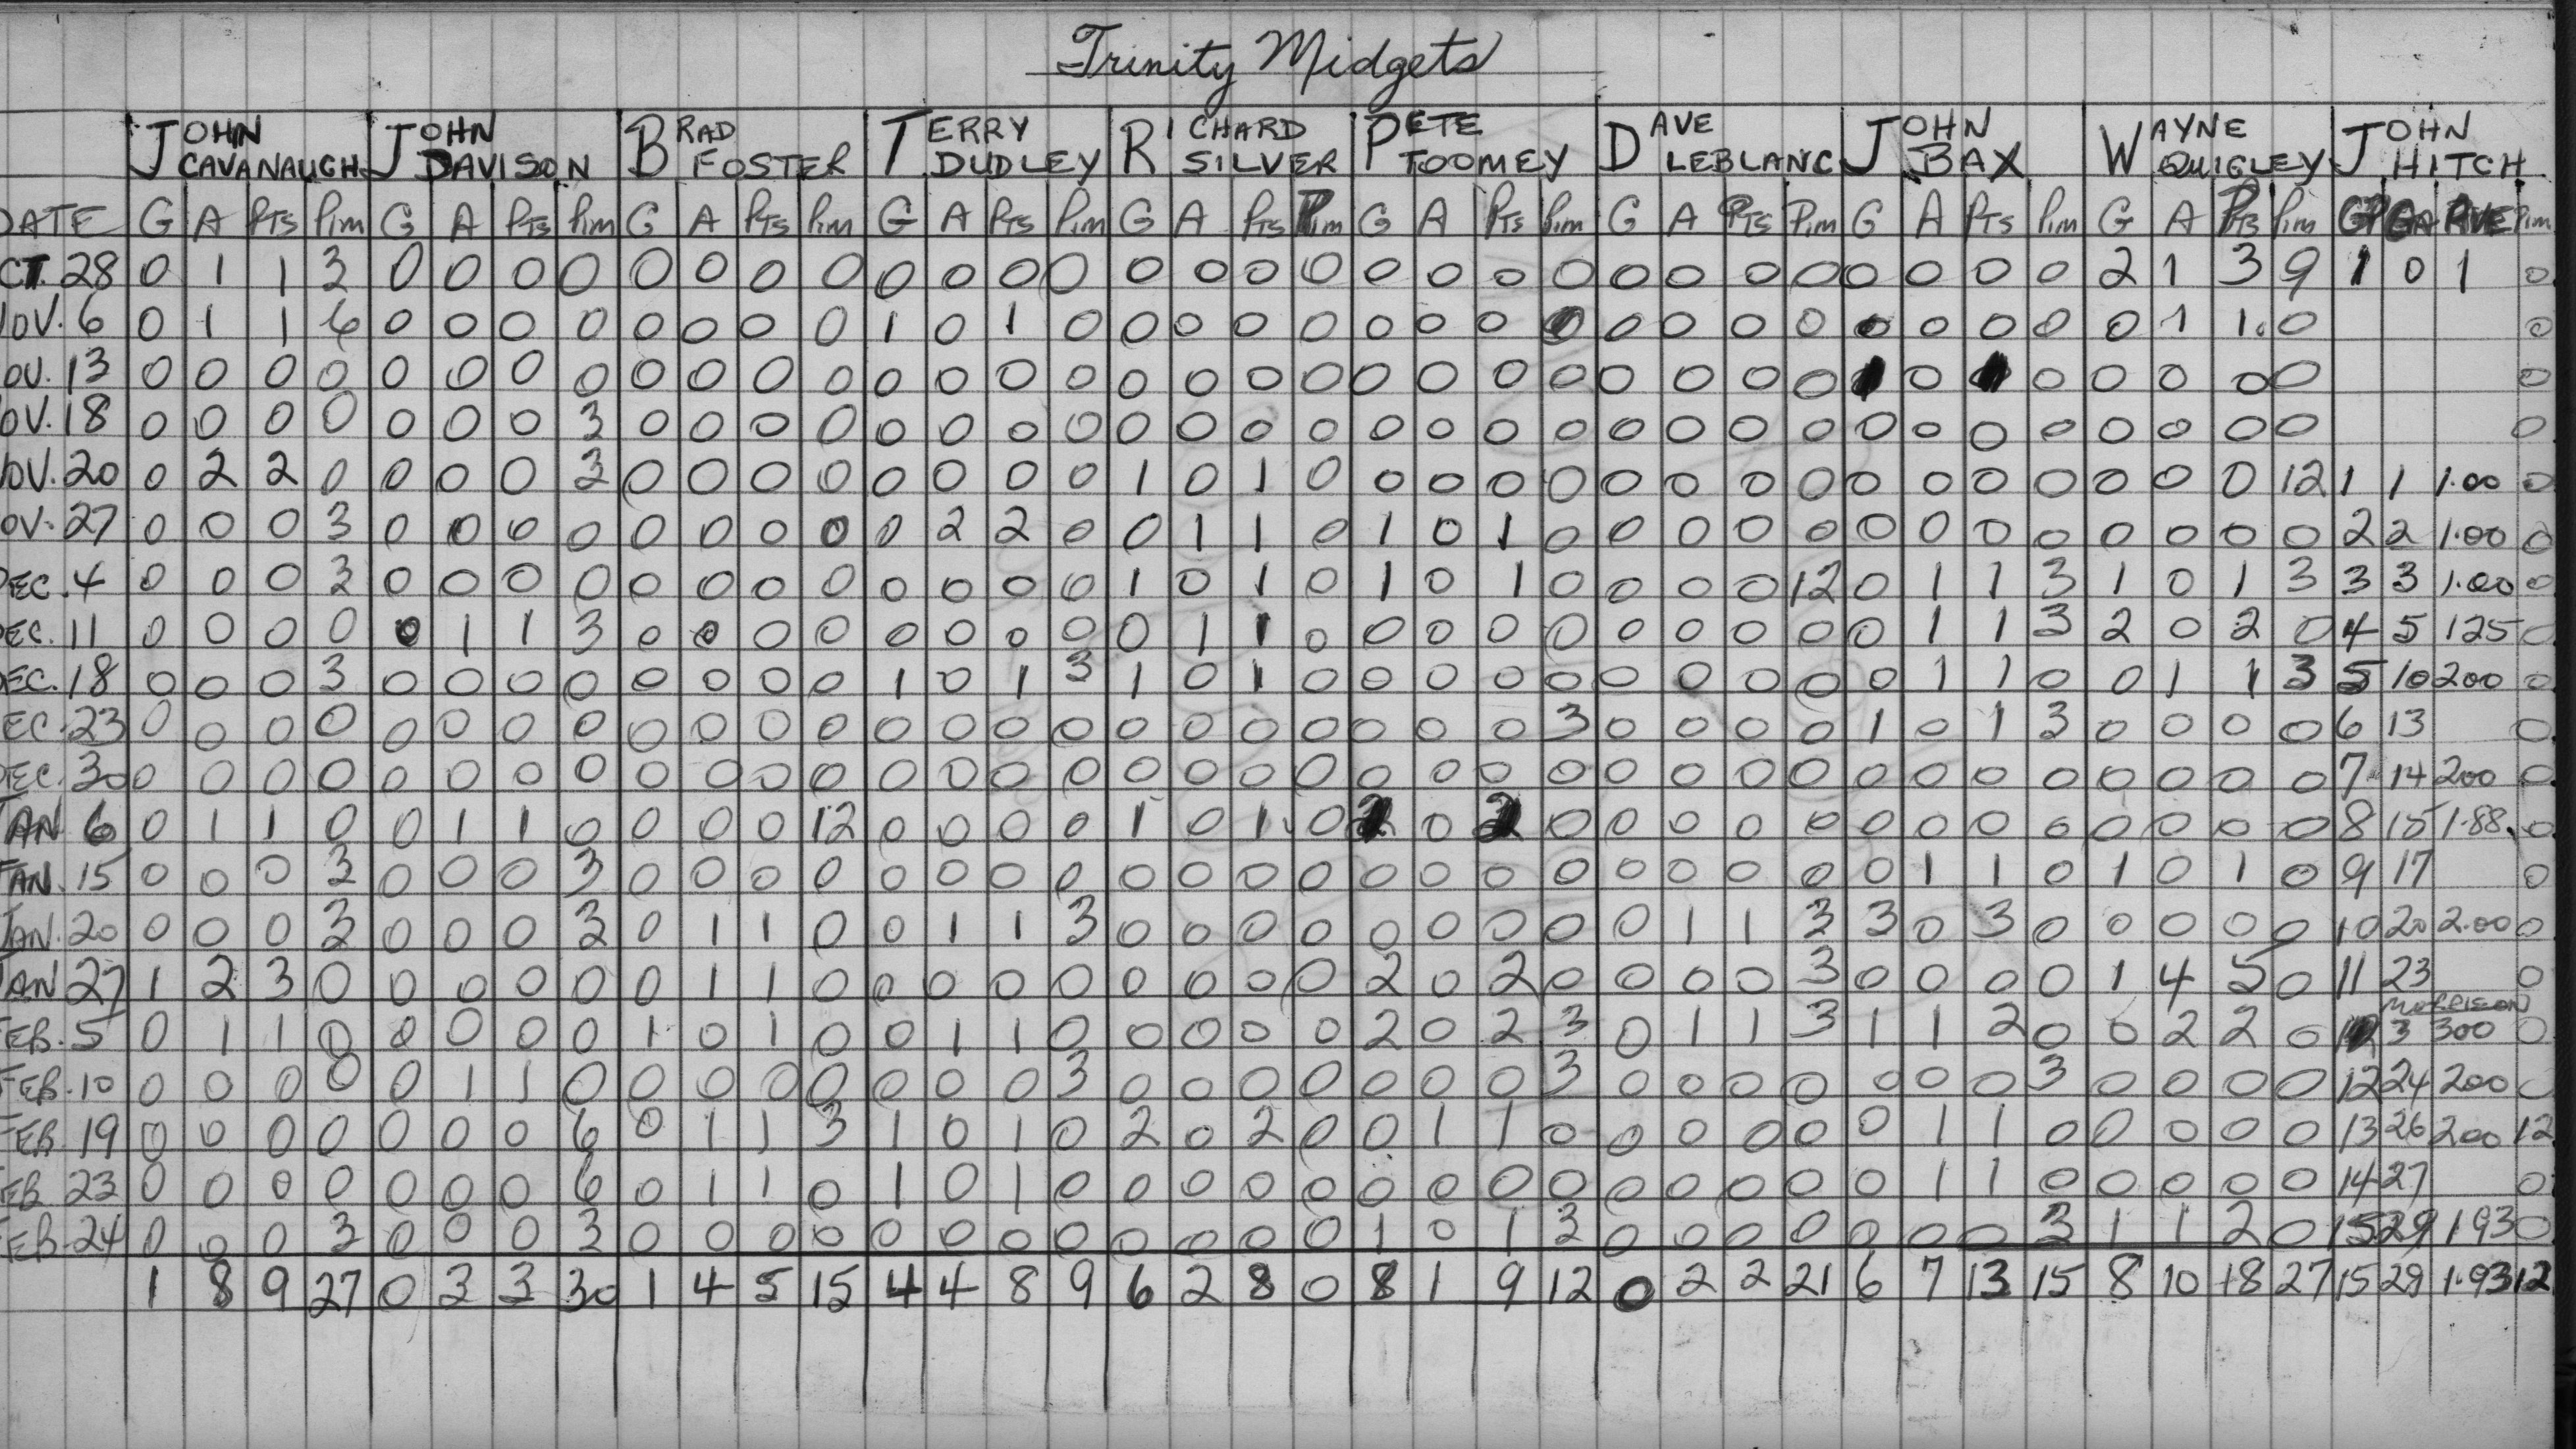 Trinity Midgets
JOHN CAVANAUGH JOHN DAVISON BRAD FOSTER TERRY DUDLEY RICHARD SILVER PETE TOOMEY DAVE LEBLANC JOHN BAX WAYNE QUIGLEY JOHN HITCH
DATE G A PTS Pim G A PTS Pim G A PTS Pim G A PTS Pim G A PTS Pim G A PTS Pim G A PTS Pim G A PTS Pim G A PTS Pim GP GA AVE Pim
CT. 28 0 1 1 3 0 0 0 0 0 0 0 0 0 0 0 0 0 0 0 0 0 0 0 0 0 0 0 0 0 0 0 0 2 1 3 9 1 0 1 0
NOV. 6 0 1 1 6 0 0 0 0 0 0 0 0 1 0 1 0 0 0 0 0 0 0 0 0 0 0 0 0 0 0 0 0 0 1 1 0 0
OV. 13 0 0 0 0 0 0 0 0 0 0 0 0 0 0 0 0 0 0 0 0 0 0 0 0 0 0 0 0 0 0 0 0 0 0 0
OV. 18 0 0 0 0 0 0 0 3 0 0 0 0 0 0 0 0 0 0 0 0 0 0 0 0 0 0 0 0 0 0 0 0 0 0 0 0 0
NOV. 20 0 2 2 0 0 0 0 3 0 0 0 0 0 0 0 0 1 0 1 0 0 0 0 0 0 0 0 0 0 0 0 0 0 0 0 12 1 1 1.00 0
OV. 27 0 0 0 3 0 0 0 0 0 0 0 0 0 2 2 0 0 1 1 0 1 0 1 0 0 0 0 0 0 0 0 0 0 0 0 0 2 2 1.00 0
DEC. 4 0 0 0 3 0 0 0 0 0 0 0 0 0 0 0 0 1 0 1 0 1 0 1 0 0 0 0 12 0 1 1 3 1 0 1 3 3 3 1.00 0
EC. 11 0 0 0 0 0 1 1 3 0 0 0 0 0 0 0 0 0 1 1 0 0 0 0 0 0 0 0 0 0 1 1 3 2 0 2 0 4 5 125 0
EC. 18 0 0 0 3 0 0 0 0 0 0 0 0 1 0 1 3 1 0 1 0 0 0 0 0 0 0 0 0 0 1 1 0 0 1 1 3 5 10 200 0
EC. 23 0 0 0 0 0 0 0 0 0 0 0 0 0 0 0 0 0 0 0 0 0 0 0 3 0 0 0 0 1 0 1 3 0 0 0 0 6 13 0
DEC. 30 0 0 0 0 0 0 0 0 0 0 0 0 0 0 0 0 0 0 0 0 0 0 0 0 0 0 0 0 0 0 0 0 0 0 0 0 7 14 200 0
JAN 6 0 1 1 0 0 1 1 0 0 0 0 12 0 0 0 0 1 0 1 0 2 0 2 0 0 0 0 0 0 0 0 0 0 0 0 0 8 15 1.88 0
JAN. 15 0 0 0 3 0 0 0 3 0 0 0 0 0 0 0 0 0 0 0 0 0 0 0 0 0 0 0 0 0 1 1 0 1 0 1 0 9 17 0
JAN. 20 0 0 0 3 0 0 0 3 0 1 1 0 0 1 1 3 0 0 0 0 0 0 0 0 0 1 1 3 3 0 3 0 0 0 0 0 10 20 2.00 0
JAN 27 1 2 3 0 0 0 0 0 0 1 1 0 0 0 0 0 0 0 0 0 2 0 2 0 0 0 0 3 0 0 0 0 1 4 5 0 11 23 0
MORRISON
FEB. 5 0 1 1 0 0 0 0 0 1 0 1 0 0 1 1 0 0 0 0 0 2 0 2 3 0 1 1 3 1 1 2 0 0 2 2 0 3 300 0
FEB. 10 0 0 0 0 0 1 1 0 0 0 0 0 0 0 0 3 0 0 0 0 0 0 0 3 0 0 0 0 0 0 0 3 0 0 0 0 12 24 200 0
FEB 19 0 0 0 0 0 0 0 6 0 1 1 3 1 0 1 0 2 0 2 0 0 1 1 0 0 0 0 0 0 1 1 0 0 0 0 0 13 26 200 12
EB 23 0 0 0 0 0 0 0 6 0 1 1 0 1 0 1 0 0 0 0 0 0 0 0 0 0 0 0 0 0 1 1 0 0 0 0 0 14 27 0
FEB. 24 0 0 0 3 0 0 0 3 0 0 0 0 0 0 0 0 0 0 0 0 1 0 1 3 0 0 0 0 0 0 0 3 1 1 2 0 15 29 1 93 0
1 8 9 27 0 3 3 30 1 4 5 15 4 4 8 9 6 2 8 0 8 1 9 12 0 2 2 21 6 7 13 15 8 10 18 27 15 29 1.93 12